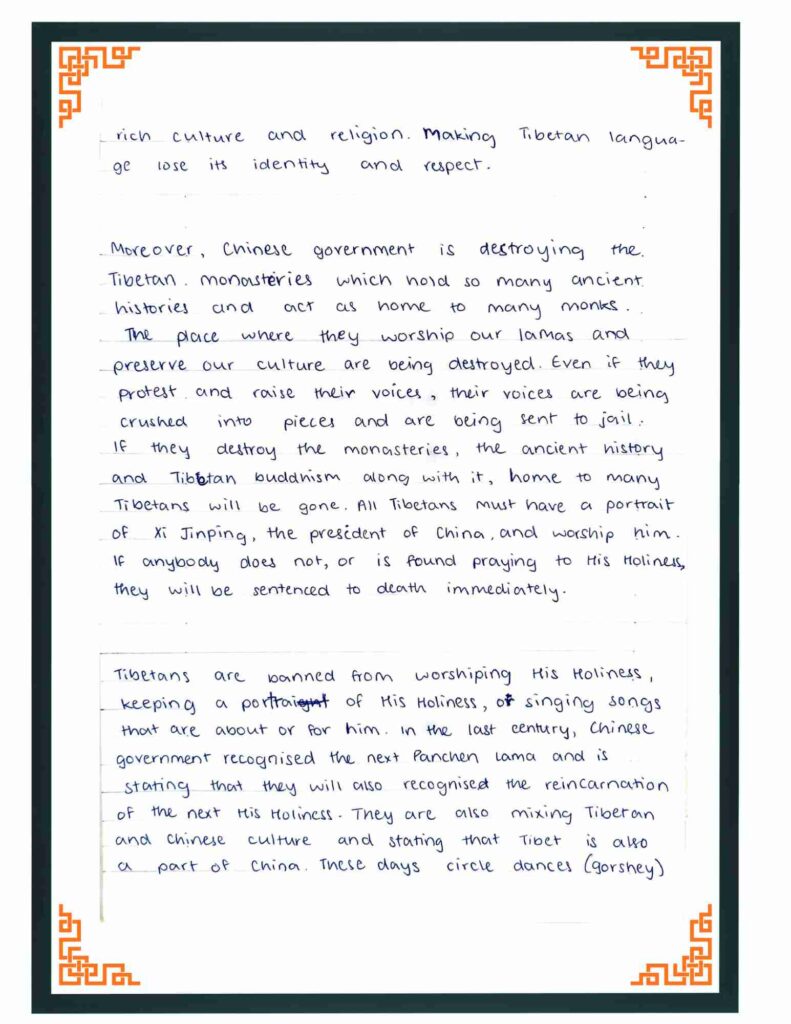 rich culture and religion. Making Tibetan langua-
ge lose its identity and respect.
Moreover, Chinese government is destroying the
Tibetan monasteries which hold so many ancient
histories and act as home to many monks.
The place where they worship our lamas and
preserve our culture are being destroyed. Even if they
protest and raise their voices, their voices are being
crushed into pieces and are being sent to jail.
If they destroy the monasteries, the ancient history
and Tibetan buddhism along with it, home to many
Tibetans will be gone. All Tibetans must have a portrait
of Xi Jinping, the president of China, and worship him.
If anybody does not, or is found praying to His Holiness,
they will be sentenced to death immediately.
Tibetans are banned from worshiping His Holiness,
keeping a portrait of His Holiness, or singing songs
that are about or for him. In the last century, Chinese
government recognised the next Panchen Lama and is
stating that they will also recognised the reincarnation
of the next His Holiness. They are also mixing Tibetan
and Chinese culture and stating that Tibet is also
a part of China. These days circle dances (gorshey)